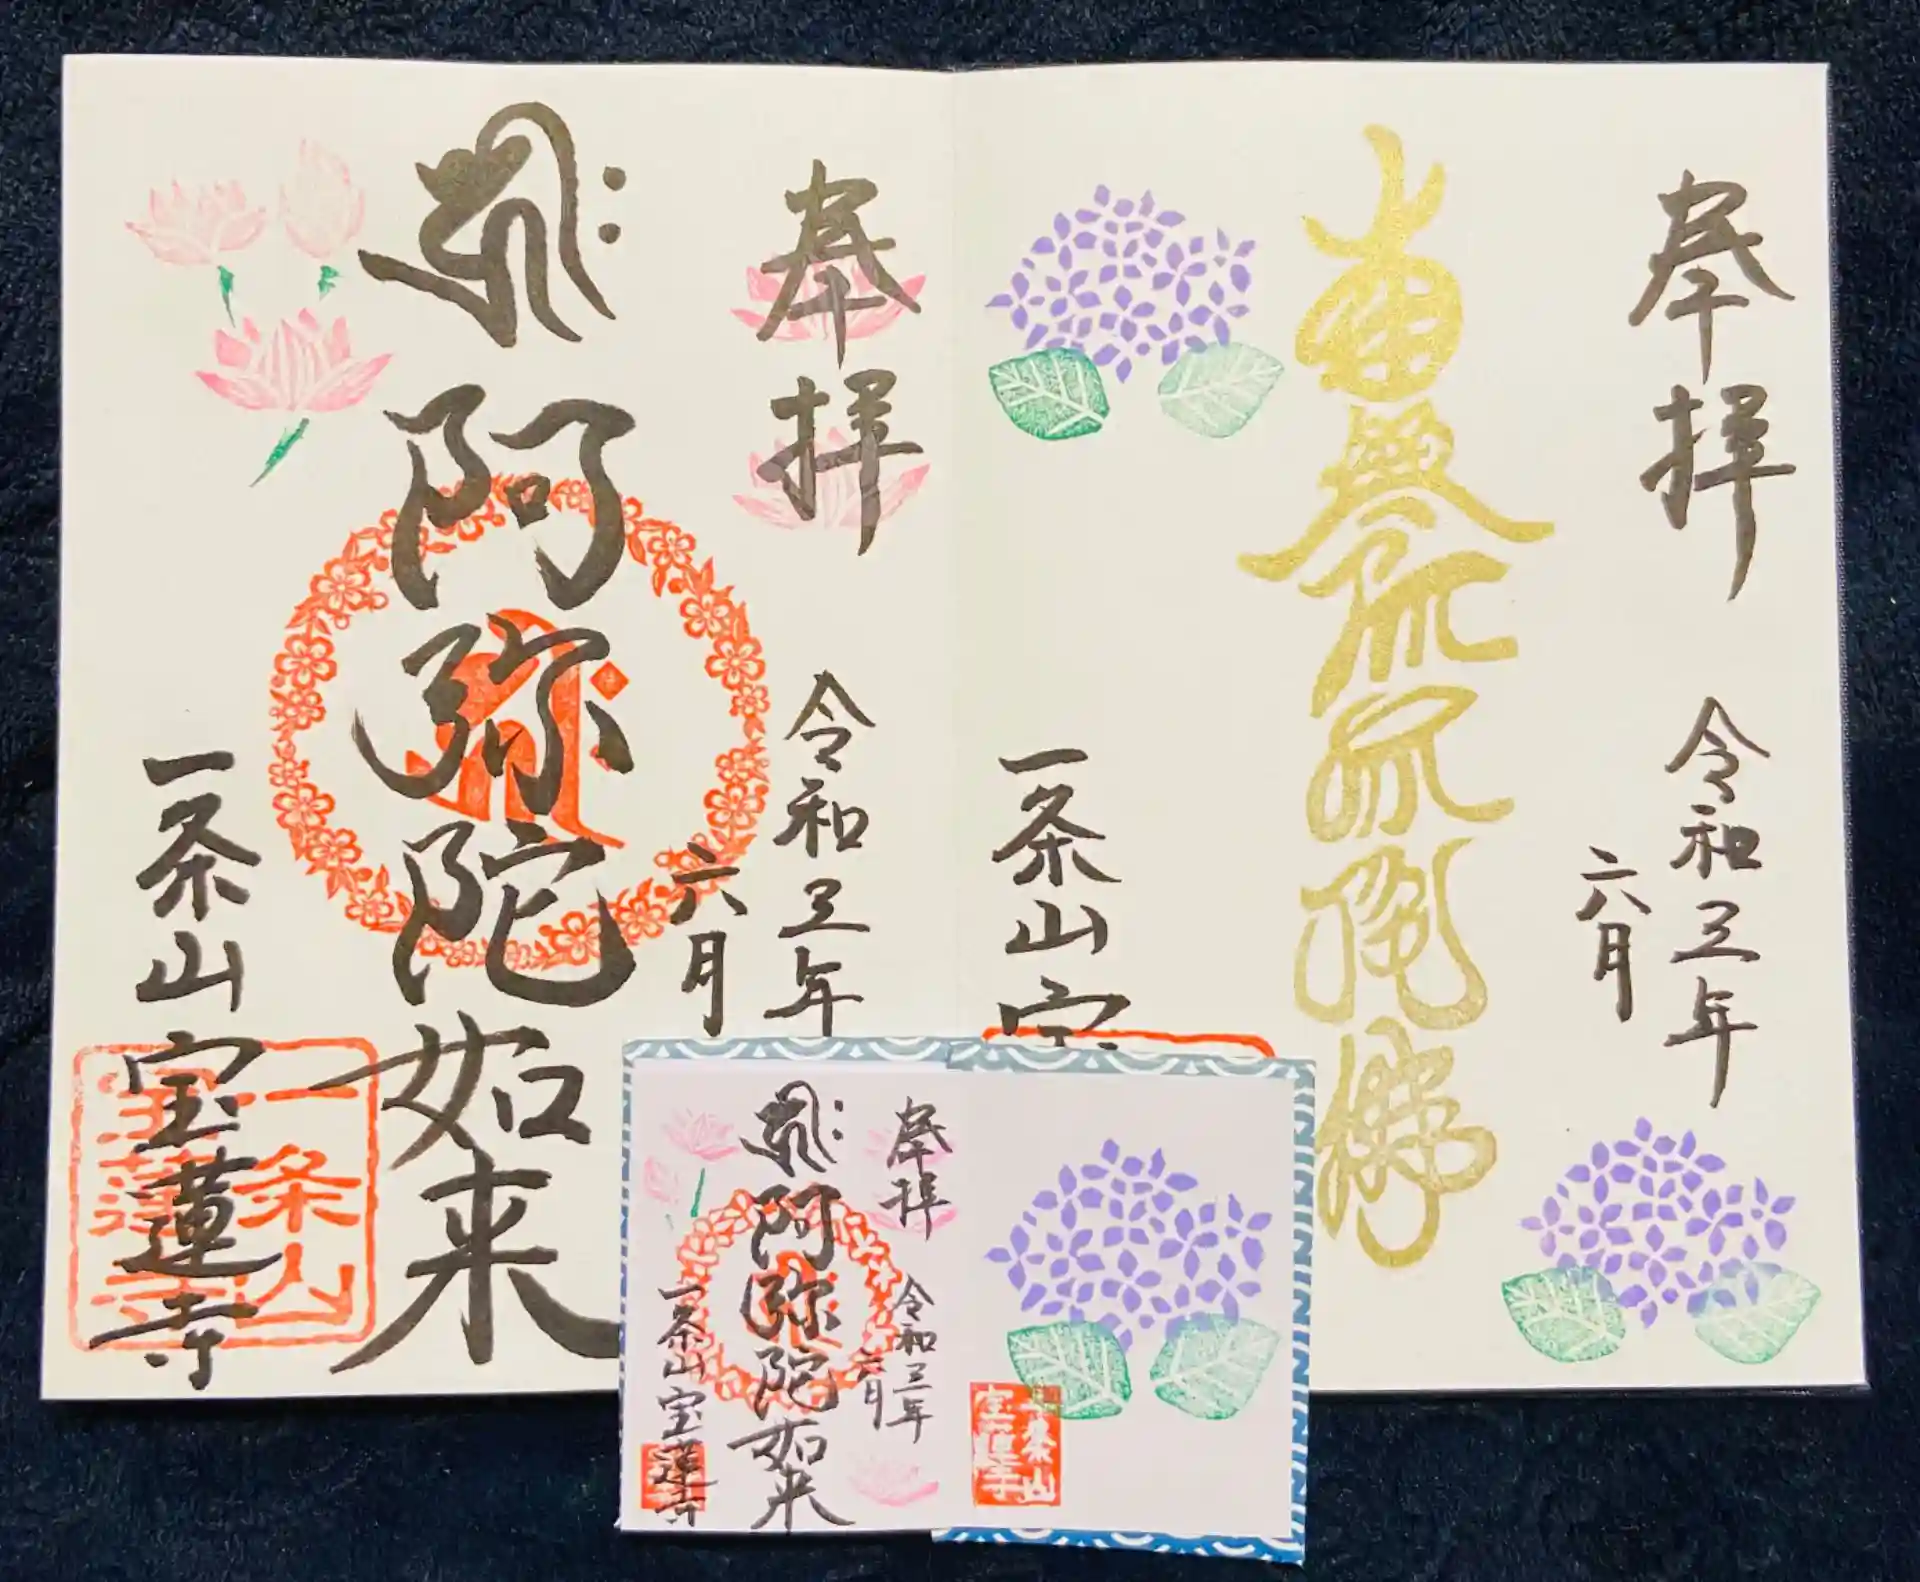 奉拝
令和三年
六月
南無阿弥陀佛
一条山宝
奉拝
令和三年
六月
阿弥陀如来
一条山宝蓮寺
一条山
宝蓮寺
奉拝
令和三年
六月
阿弥陀如来
一条山宝蓮寺
一条山
宝蓮寺